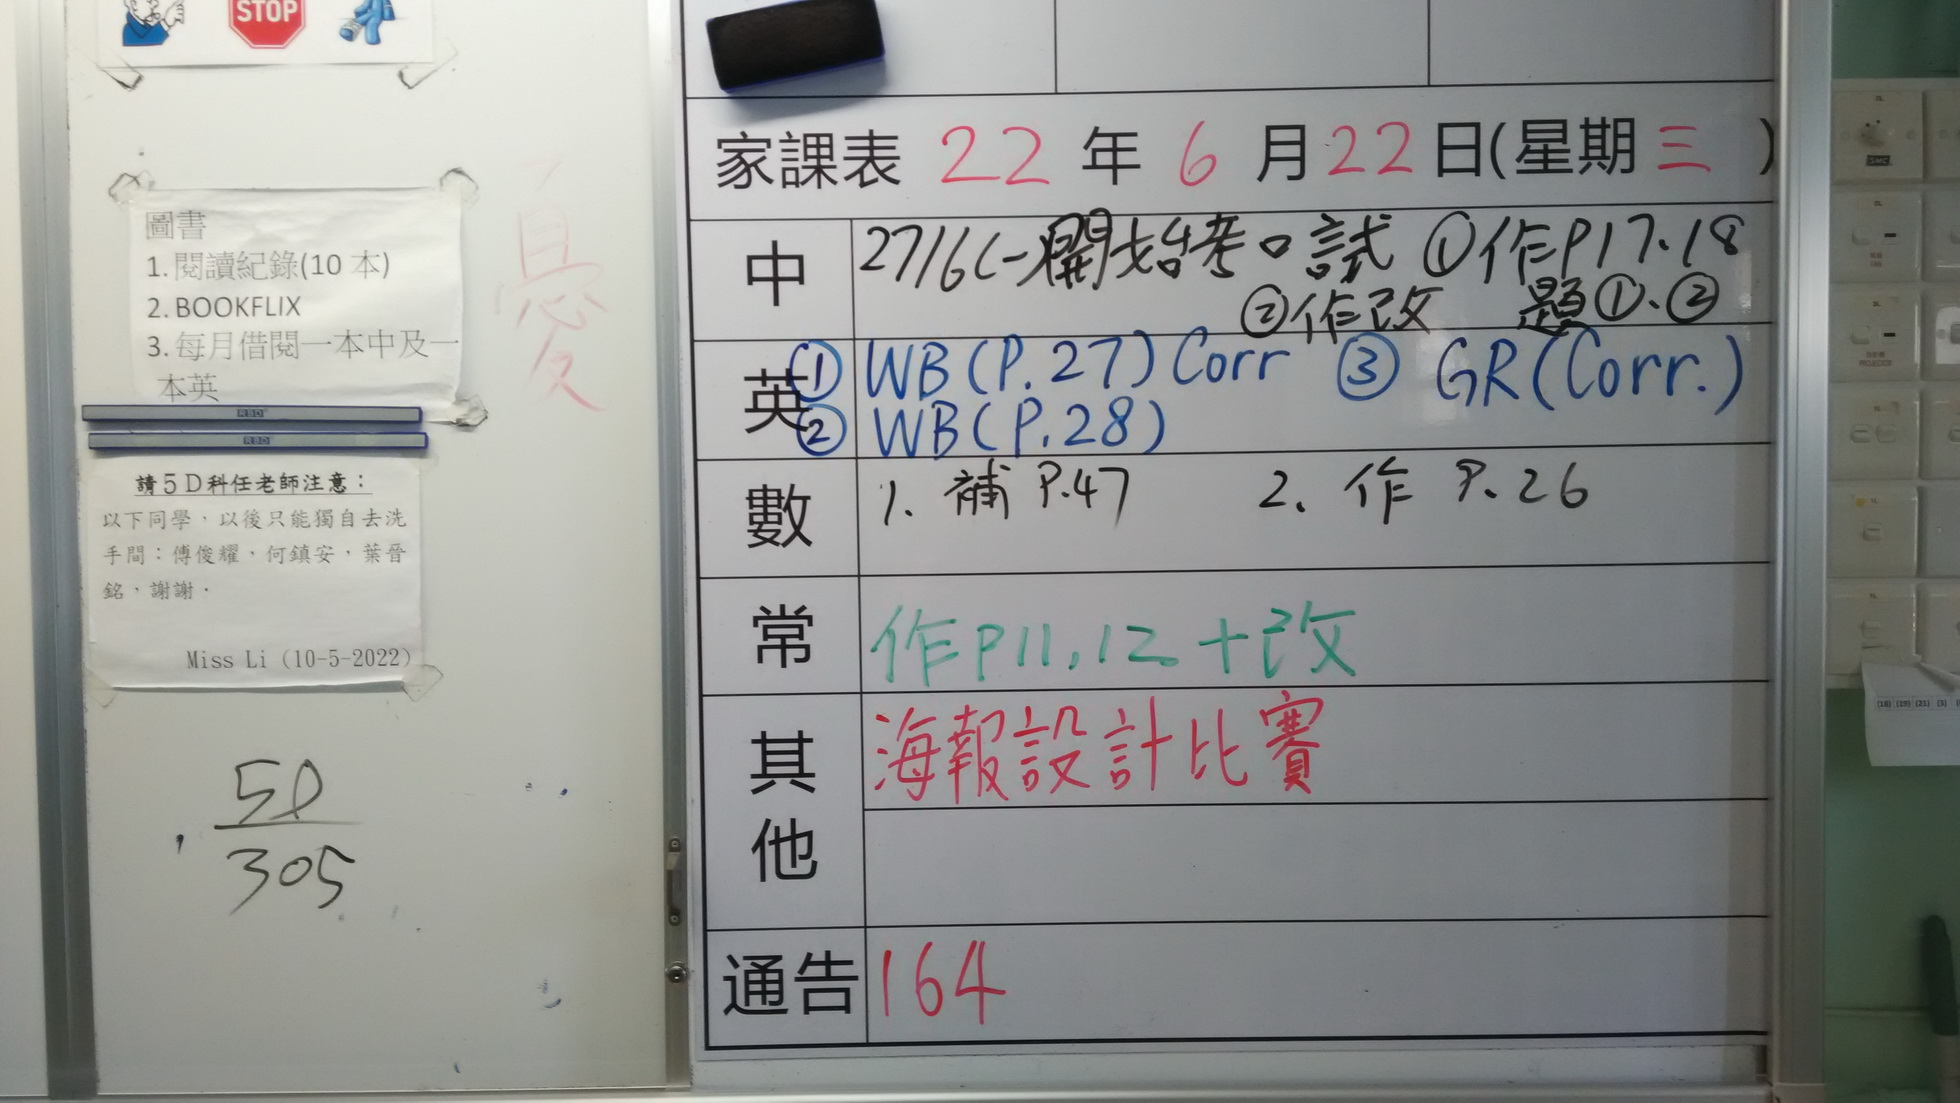 STOP
圖書
1. 閱讀紀錄(10 本)
2. BOOKFLIX
3. 每月借閱一本中及一
本英
RBD
RBD
請5D科任老師注意：
以下同學，以後只能獨自去洗
手間：傅俊耀，何鎮安，葉晉
銘，謝謝．
Miss Li (10-5-2022)
憂
5D
305
家課表 22 年 6 月 22 日(星期 三 )
中 27/6(一開始考口試 ①作P17.18
②作改 題①、②
英 ① WB(P.27) Corr ③ GR(Corr.)
② WB(P.28)
數 1. 補 P.47 2. 作 P.26
常 作P11,12 + 改
其他 海報設計比賽
通告 164